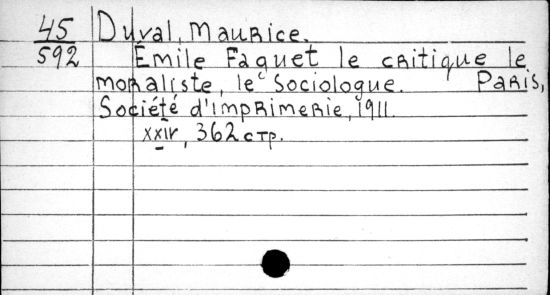 45 Duval, Maurice.
592 Émile Faguet le critique le
moraliste, le Sociologue. Paris,
Société d'imprimerie, 1911.
xxiv, 362 стр.